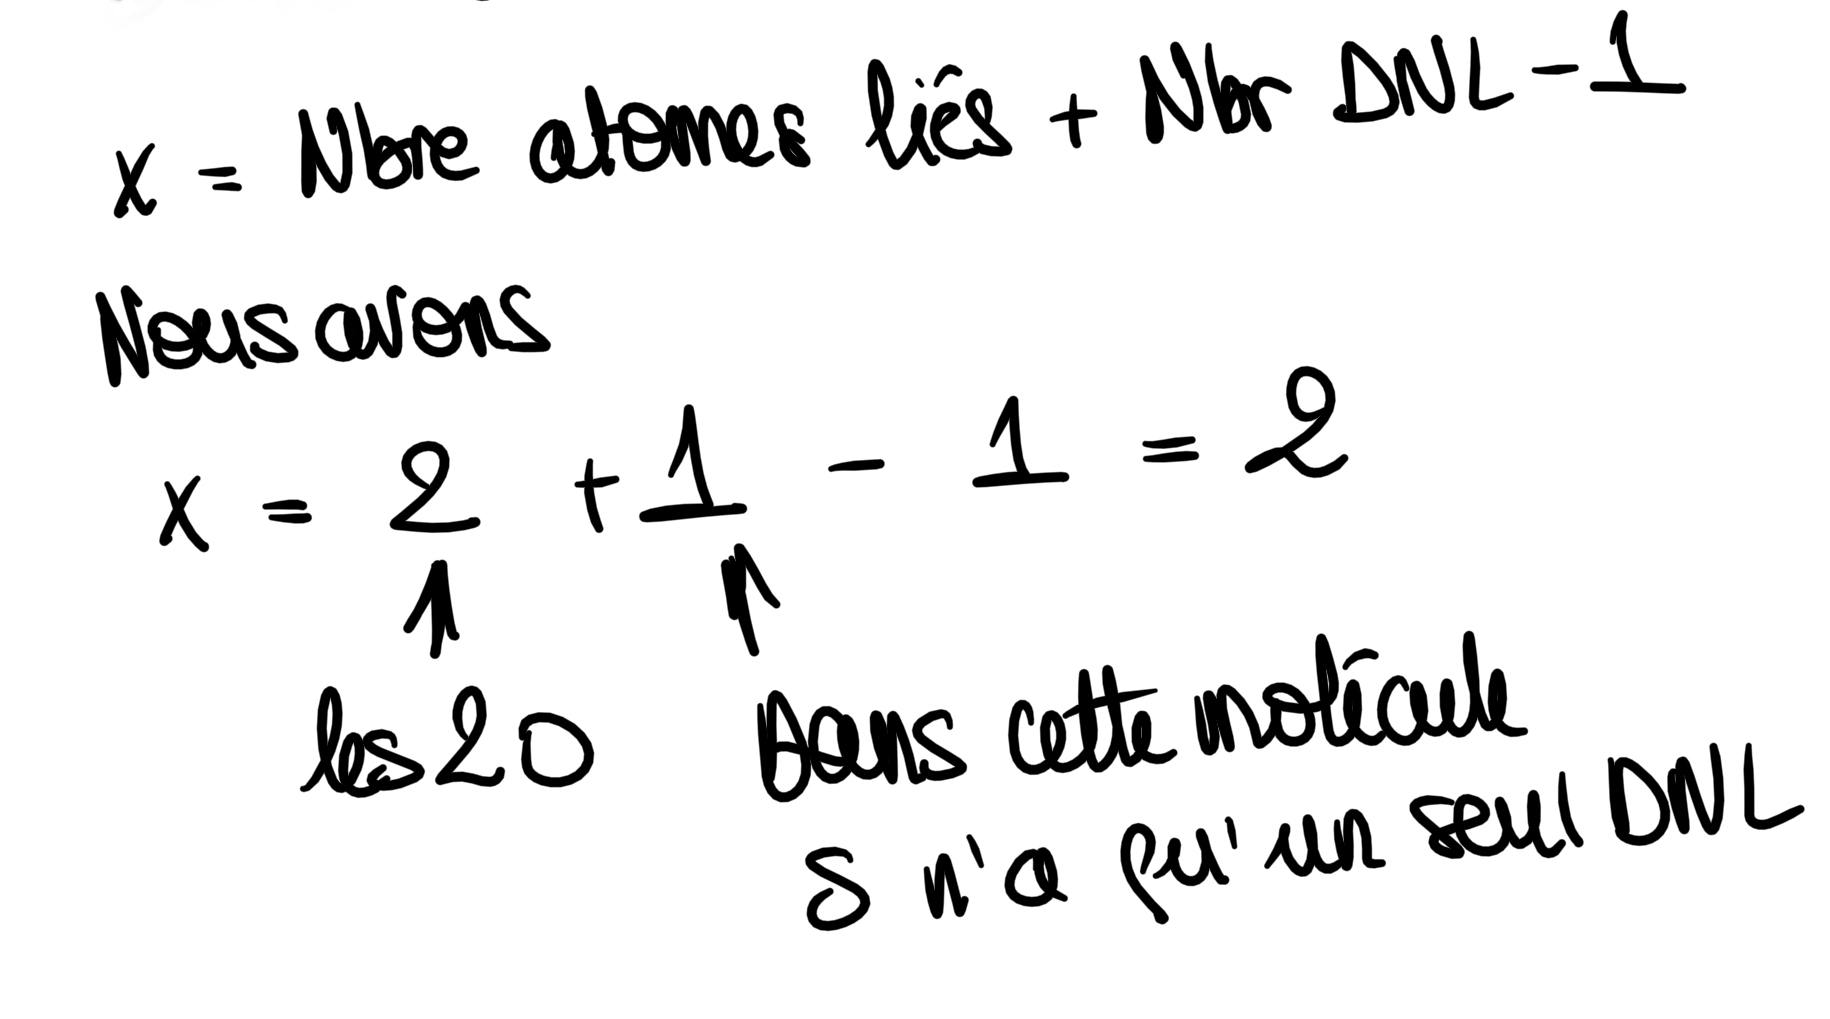 x = Nbre atomes liés + Nbr DNL - 1
Nous avons
x = 2 + 1 - 1 = 2
les 2 O
Dans cette molécule
S n'a qu'un seul DNL